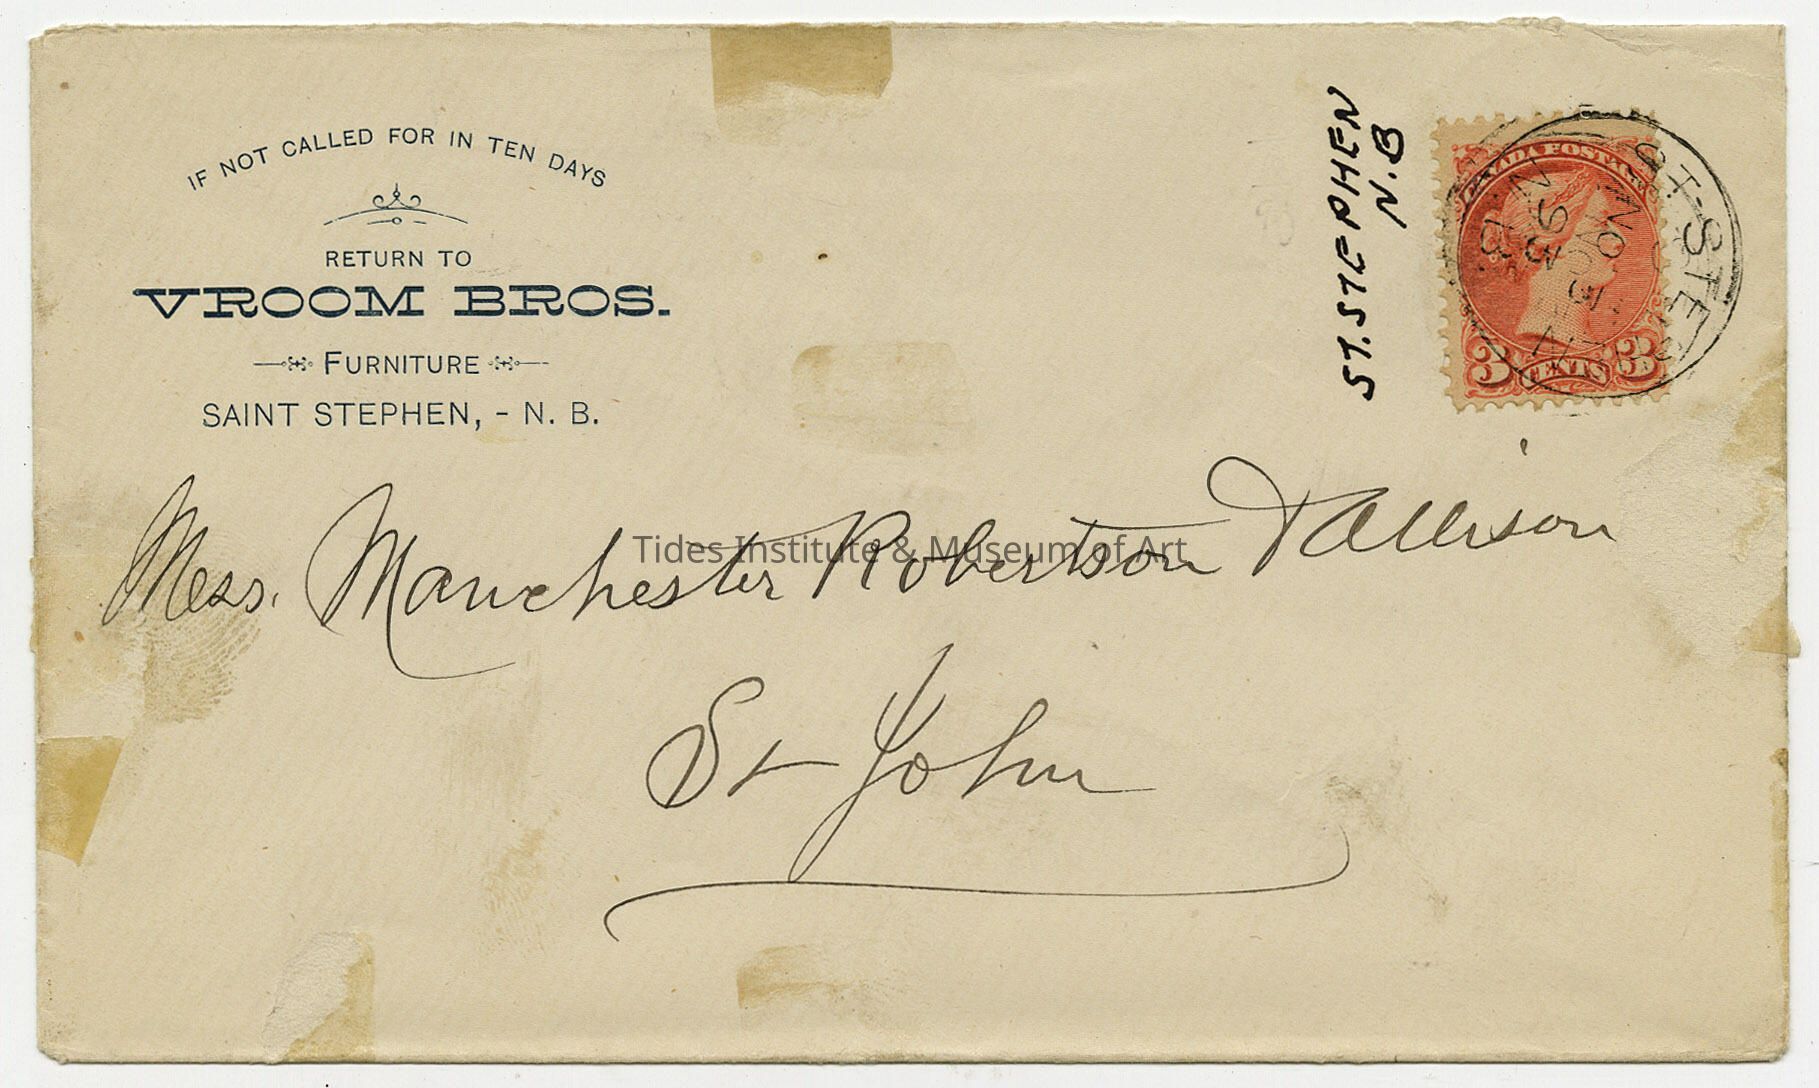 IF NOT CALLED FOR IN TEN DAYS
RETURN TO
VROOM BROS.
FURNITURE
SAINT STEPHEN, - N. B.
ST. STEPHEN
N.B
CANADA POSTAGE
3 CENTS 3
ST-STE
Mess. Manchester Robertson & Allison
St John
Tides Institute & Museum of Art